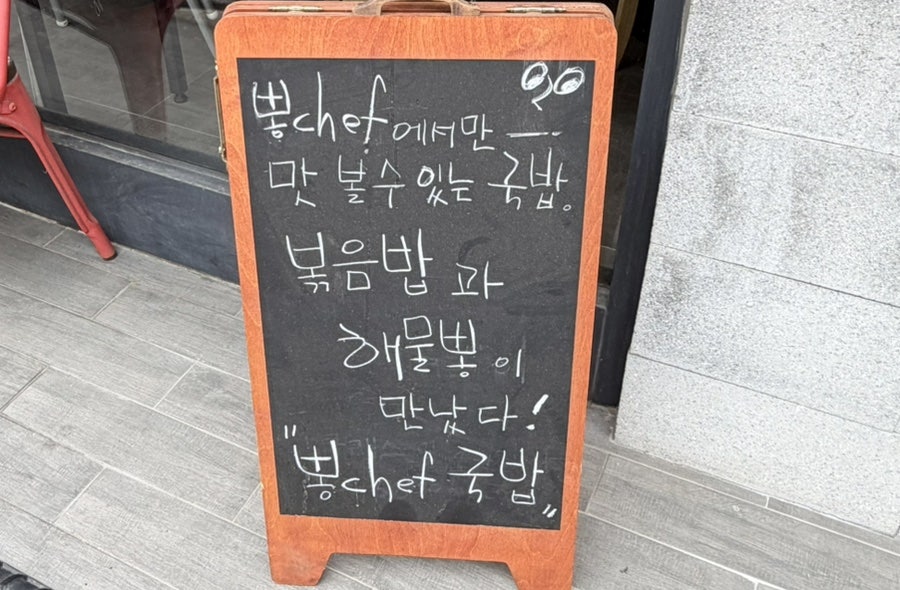 뽕chef에서만
맛 볼 수 있는 국밥。
볶음밥과
해물뽕이
만났다!
"뽕chef 국밥"